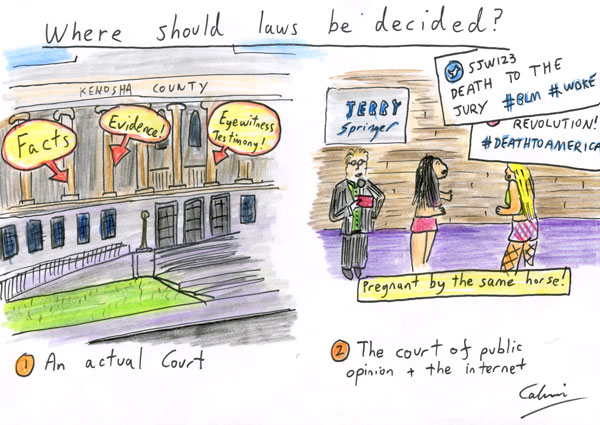 Where should laws be decided?
KENOSHA COUNTY
Facts
Evidence!
Eyewitness
Testimony!
1 An actual Court
JERRY
Springer
SJW123
DEATH TO THE
JURY #BLM #WOKE
REVOLUTION!
#DEATHTOAMERICA
Pregnant by the same horse!
2 The court of public
opinion + the internet